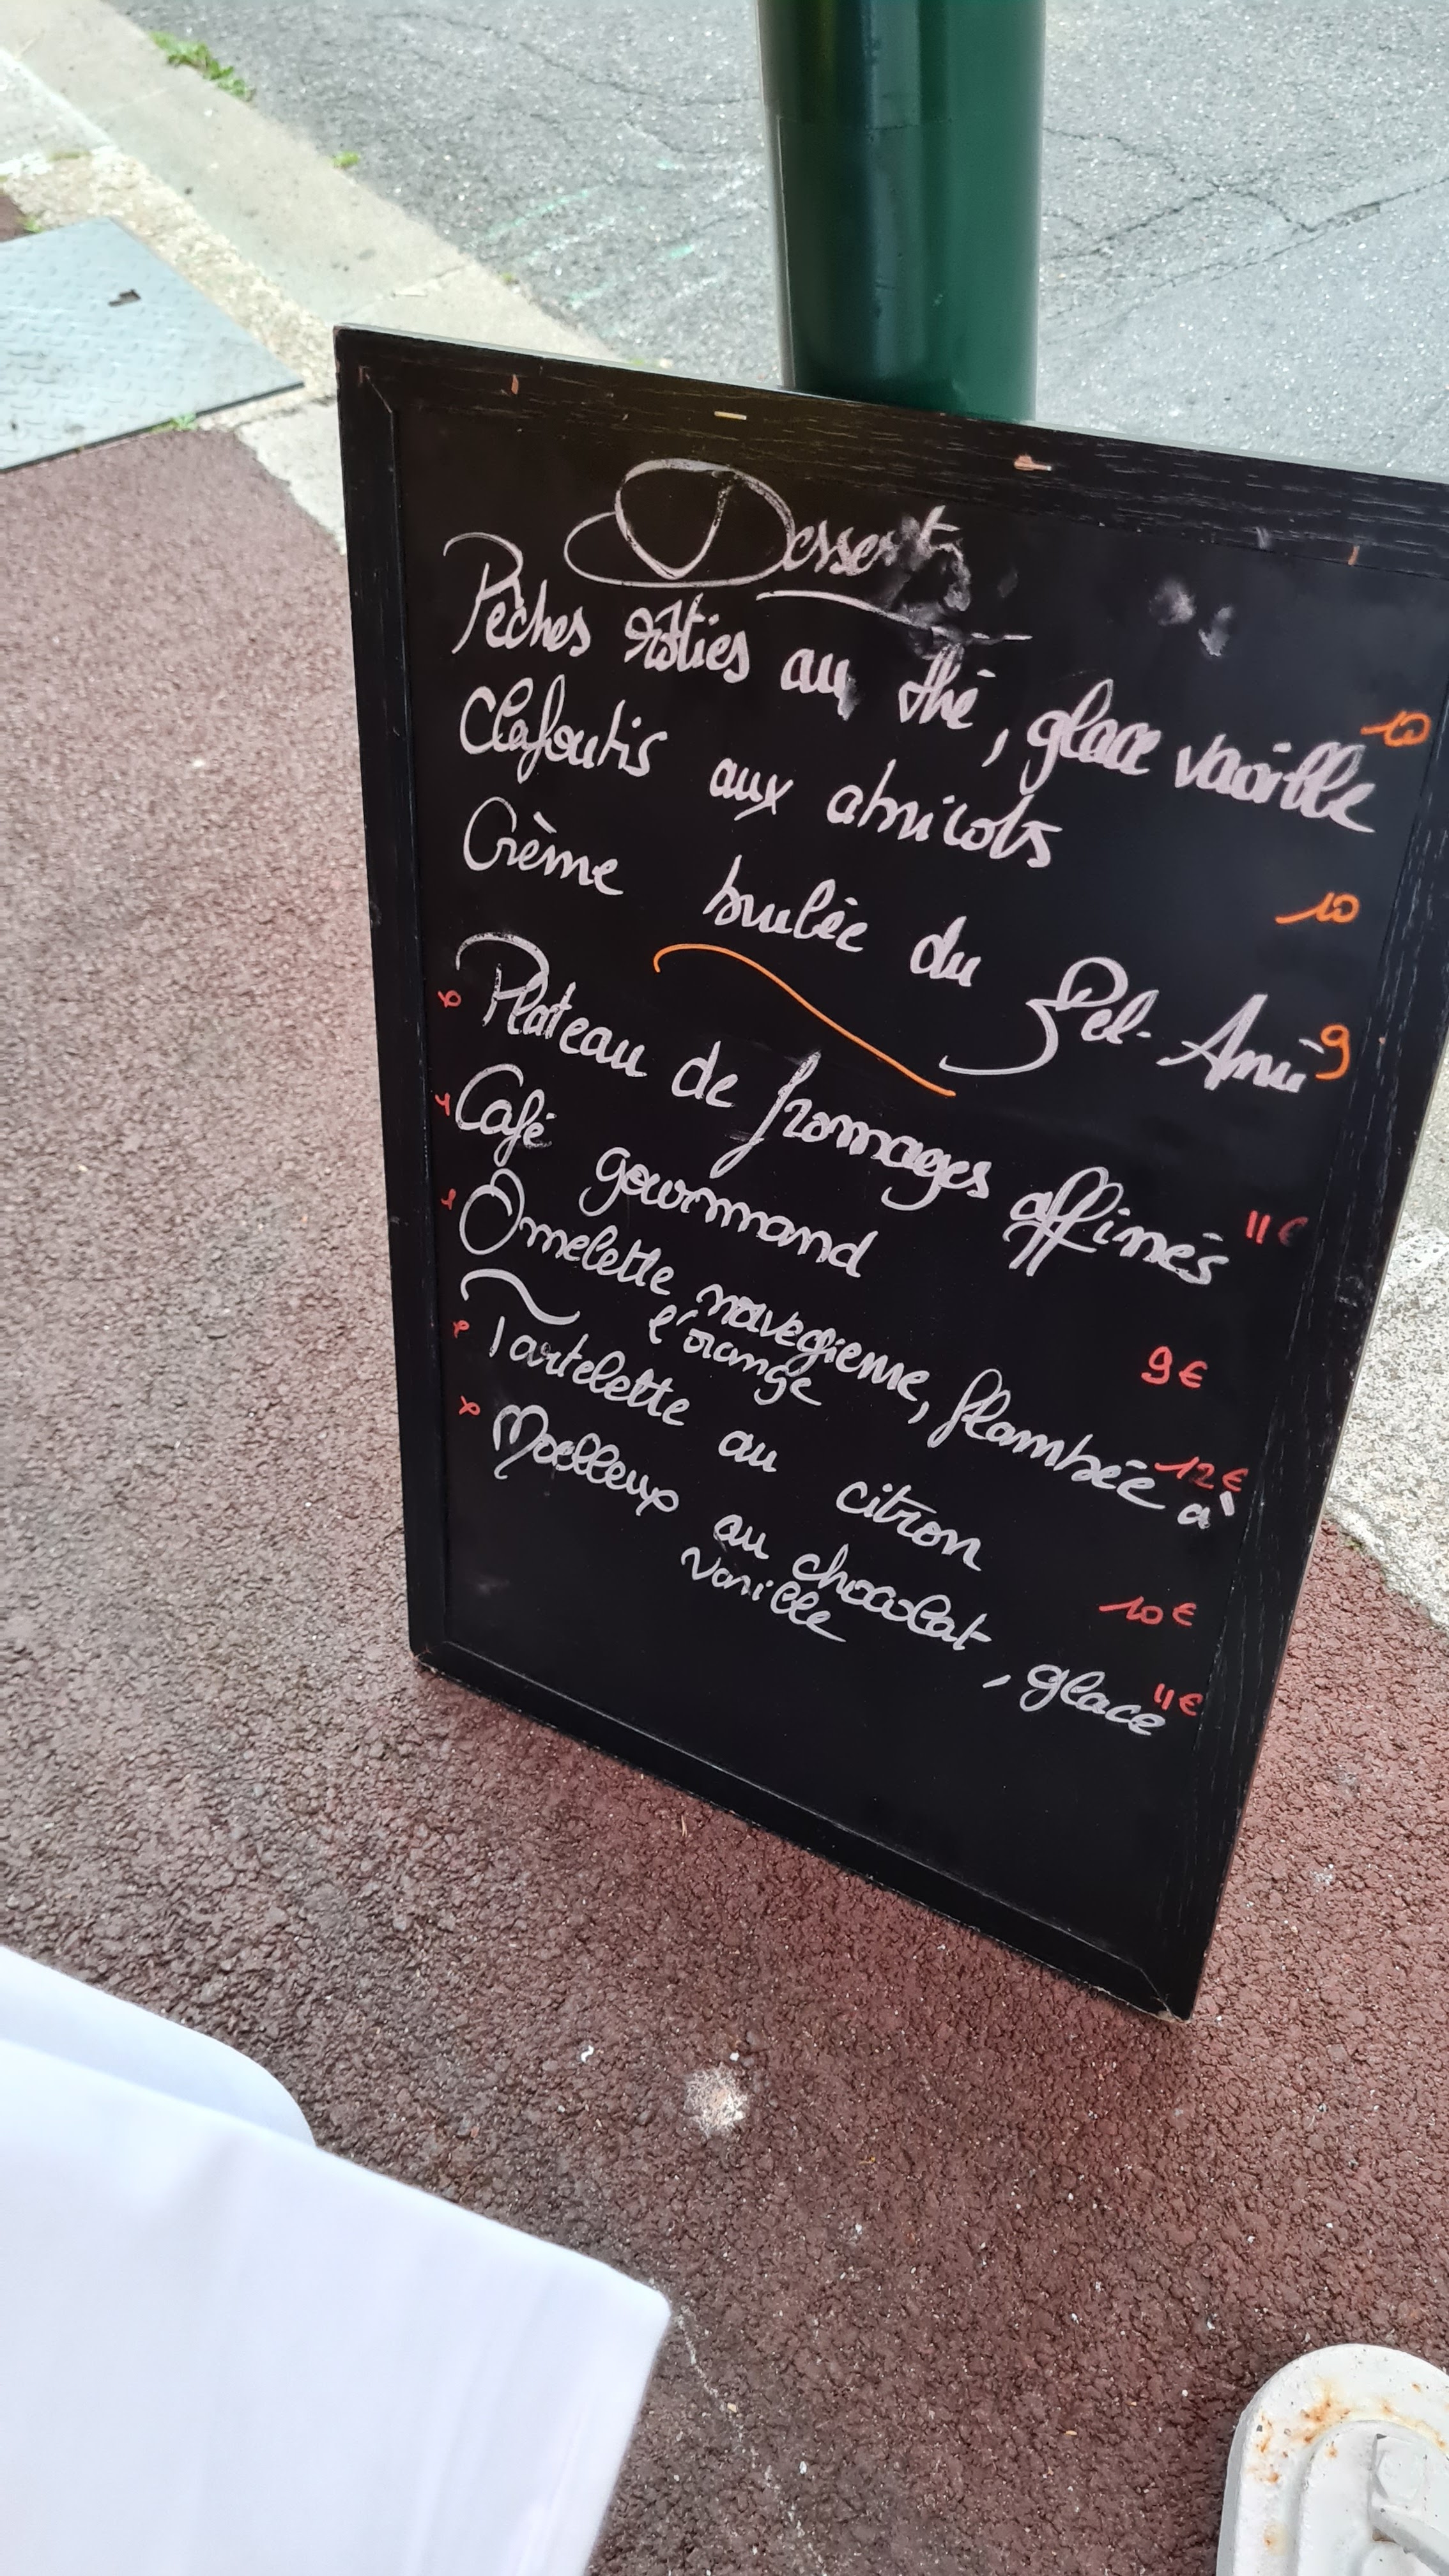 Desserts
Pêches rôties au thé, glace vanille 10
Clafoutis aux abricots 10
Crème brulée du Bel-Ami 9
Plateau de fromages affinés 11€
Café gourmand 9€
Omelette novegienne, flambée à 12€
l'orange
Tartelette au citron 10€
Moelleux au chocolat, glace 11€
vanille